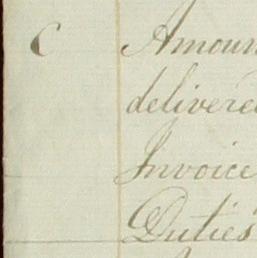 C Amoun
delivered
Invoice
Duties